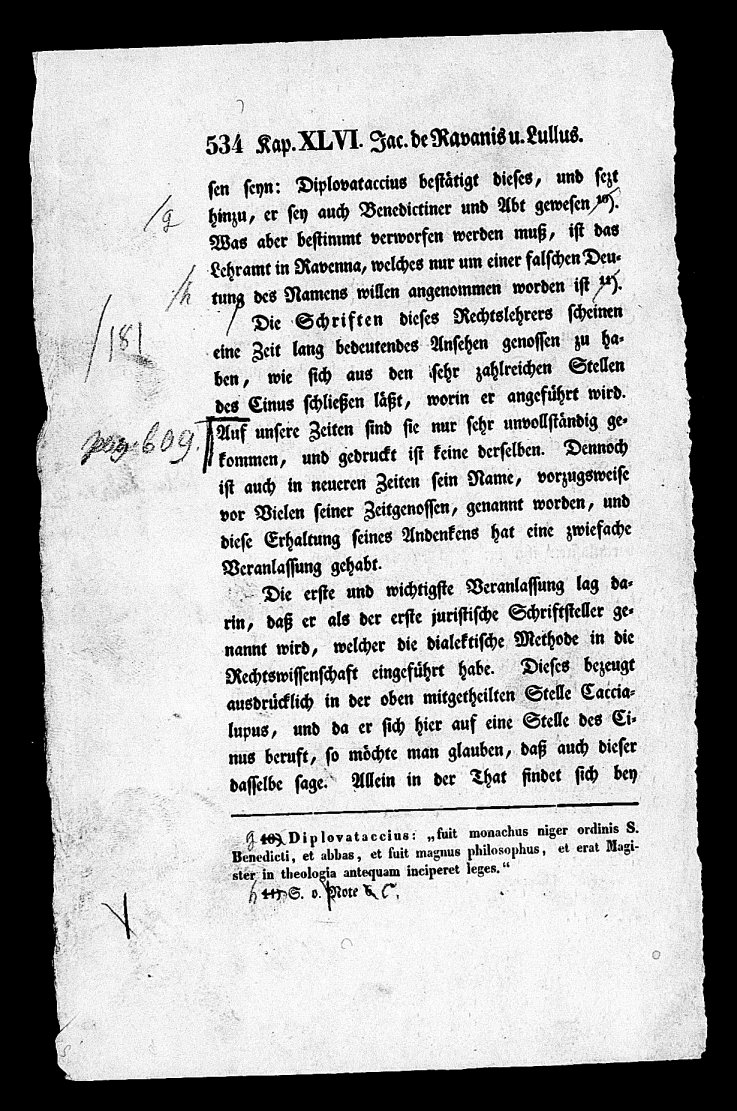 534 Kap. XLVI. Jac. de Ravanis u. Lullus.
sen seyn: Diplovataccius bestätigt dieses, und sezt
/g hinzu, er sey auch Benedictiner und Abt gewesen 10).
Was aber bestimmt verworfen werden muß, ist das
Lehramt in Ravenna, welches nur um einer falschen Deu-
/h tung des Namens willen angenommen worden ist 11).
Die Schriften dieses Rechtslehrers scheinen
/181 eine Zeit lang bedeutendes Ansehen genossen zu ha-
ben, wie sich aus den sehr zahlreichen Stellen
des Cinus schließen läßt, worin er angeführt wird.
pag. 609. Auf unsere Zeiten sind sie nur sehr unvollständig ge-
kommen, und gedruckt ist keine derselben. Dennoch
ist auch in neueren Zeiten sein Name, vorzugsweise
vor Vielen seiner Zeitgenossen, genannt worden, und
diese Erhaltung seines Andenkens hat eine zwiefache
Veranlassung gehabt.
Die erste und wichtigste Veranlassung lag da-
rin, daß er als der erste juristische Schriftsteller ge-
nannt wird, welcher die dialektische Methode in die
Rechtswissenschaft eingeführt habe. Dieses bezeugt
ausdrücklich in der oben mitgetheilten Stelle Caccia-
lupus, und da er sich hier auf eine Stelle des Ci-
nus beruft, so möchte man glauben, daß auch dieser
dasselbe sage. Allein in der That findet sich bey
g 10) Diplovataccius: „fuit monachus niger ordinis S.
Benedicti, et abbas, et fuit magnus philosophus, et erat Magi-
ster in theologia antequam inciperet leges.“
h 11) S. o. Note c.